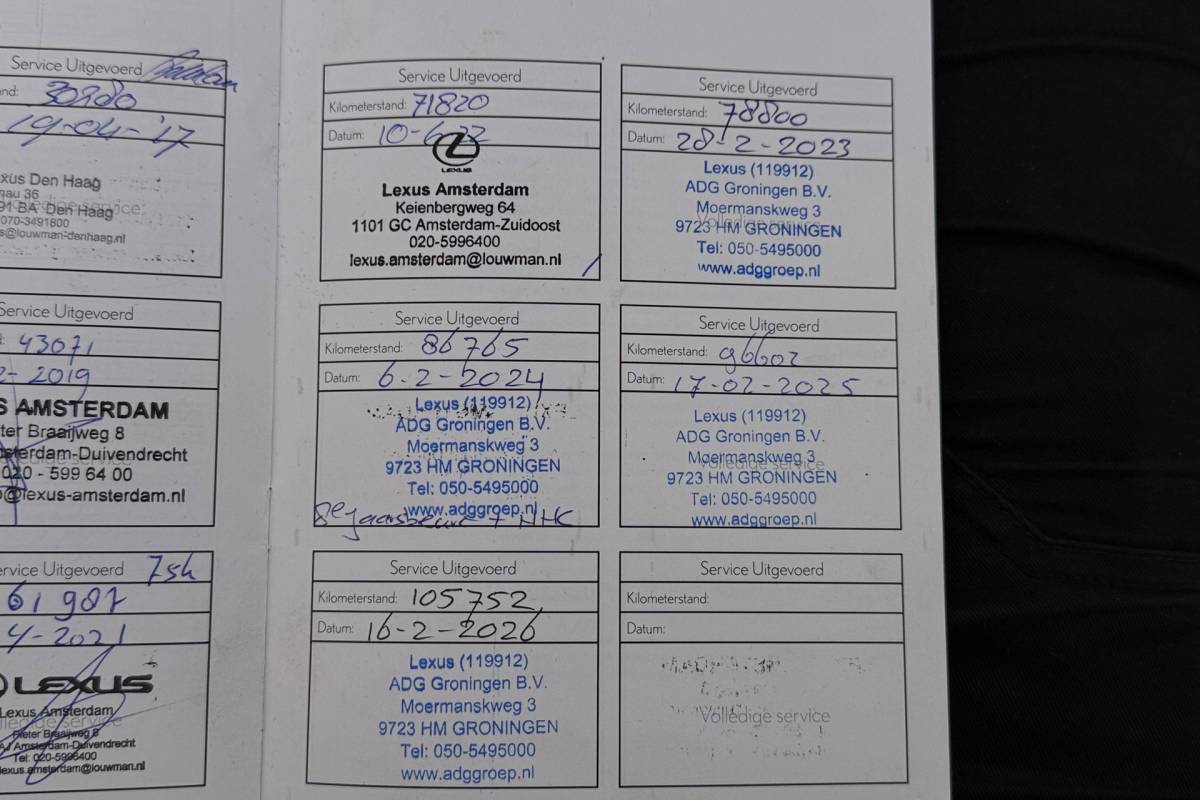 Service Uitgevoerd
30980
19-04-'17
xus Den Haag
nau 36
91 BA Den Haag
070-3491800
s@louwman-denhaag.nl
Service Uitgevoerd
43071
2-2019
S AMSTERDAM
ter Braaijweg 8
msterdam-Duivendrecht
020 - 599 64 00
o@lexus-amsterdam.nl
ervice Uitgevoerd
61987
4-2021
LEXUS
Lexus Amsterdam
Volledige service
Pieter Braaijweg 8
Amsterdam-Duivendrecht
Tel: 020-5996400
lexus.amsterdam@louwman.nl
Service Uitgevoerd
Kilometerstand: 71820
Datum: 10-6-22
LEXUS
Lexus Amsterdam
Keienbergweg 64
1101 GC Amsterdam-Zuidoost
020-5996400
lexus.amsterdam@louwman.nl
Service Uitgevoerd
Kilometerstand: 78800
Datum: 28-2-2023
Lexus (119912)
ADG Groningen B.V.
Moermanskweg 3
Volledige service
9723 HM GRONINGEN
Tel: 050-5495000
www.adggroep.nl
Service Uitgevoerd
Kilometerstand: 86765
Datum: 6-2-2024
Lexus (119912)
ADG Groningen B.V.
Moermanskweg 3
9723 HM GRONINGEN
Tel: 050-5495000
www.adggroep.nl
+ HHC
Service Uitgevoerd
Kilometerstand: 96602
Datum: 17-02-2025
Lexus (119912)
ADG Groningen B.V.
Moermanskweg 3
Volledige service
9723 HM GRONINGEN
Tel: 050-5495000
www.adggroep.nl
Service Uitgevoerd
Kilometerstand: 105752
Datum: 16-2-2026
Lexus (119912)
ADG Groningen B.V.
Moermanskweg 3
9723 HM GRONINGEN
Tel: 050-5495000
www.adggroep.nl
Service Uitgevoerd
Kilometerstand:
Datum:
Volledige service